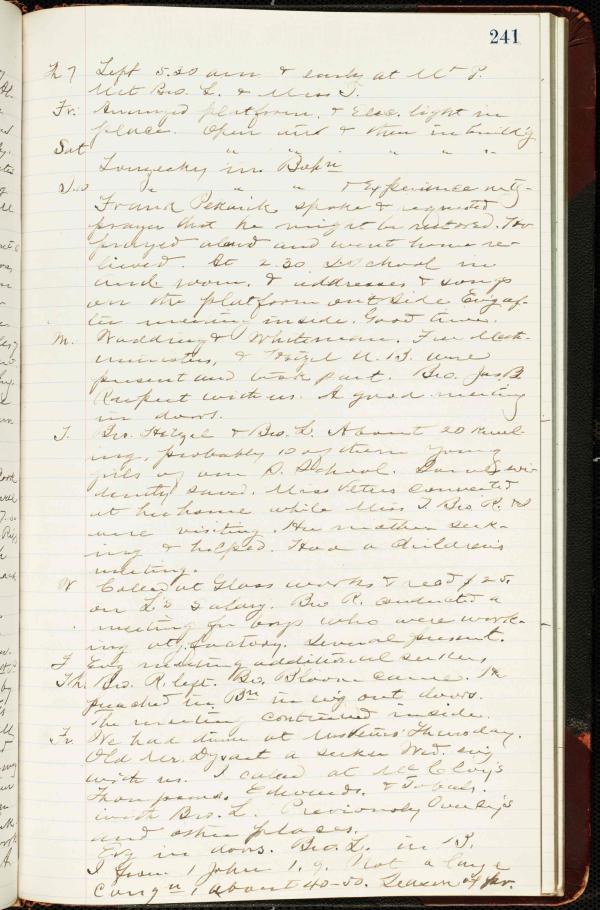 241
Th 7 Left 5.30 am & early at Mt P.
Met Bro. L. & Miss T.
Fr. Arranged platform, & Elec. light in
place. Open and & then in build'g
Sat " " " " " "
in
Sab " " " & Experience mt'g
Frank spoke & requested
prayer that he might be restored. He
prayed aloud and went home re
lieved. At 2.30 S School in
aud. room, & addresses & songs
on the platform outside Ev'g af-
ter meeting inside. Good time.
M. & Whiteman. Five Meth.
ministers, & Hetzel U. B. were
present and took part. Bro. Jas. B.
with us. A good meeting
in doors.
T. Bro. Hetzel & Bro. L. About 20 kneel-
ing, probably 10 of them young
girls of our S. School. evi
dently saved. Miss converted
at her home while Miss T Bro R. & I
were visiting. Her mother seek-
ing & helped. Had a children's
meeting.
W Called at Glass works & rec'd $25.
on L's salary. Bro R. conducted a
meeting for boys who were work-
ing at factory. Several present.
F Ev'g meeting additional seekers
Th. Bro. R. left. Bro. Bloom came. He
preached in ev'g out doors.
The meeting continued inside.
Fr. We had dinner at Thursday.
Old Mr. Dysart a seeker Wed. ev'g
with us. I called at McElvy's
Thompsons, Edwards, &
with Bro. L. Previously
and other places.
Ev'g in doors. Bro. L. in B.
I from 1 John 1. 9. Not a large
cong'n, about 40-50. Season of pr.